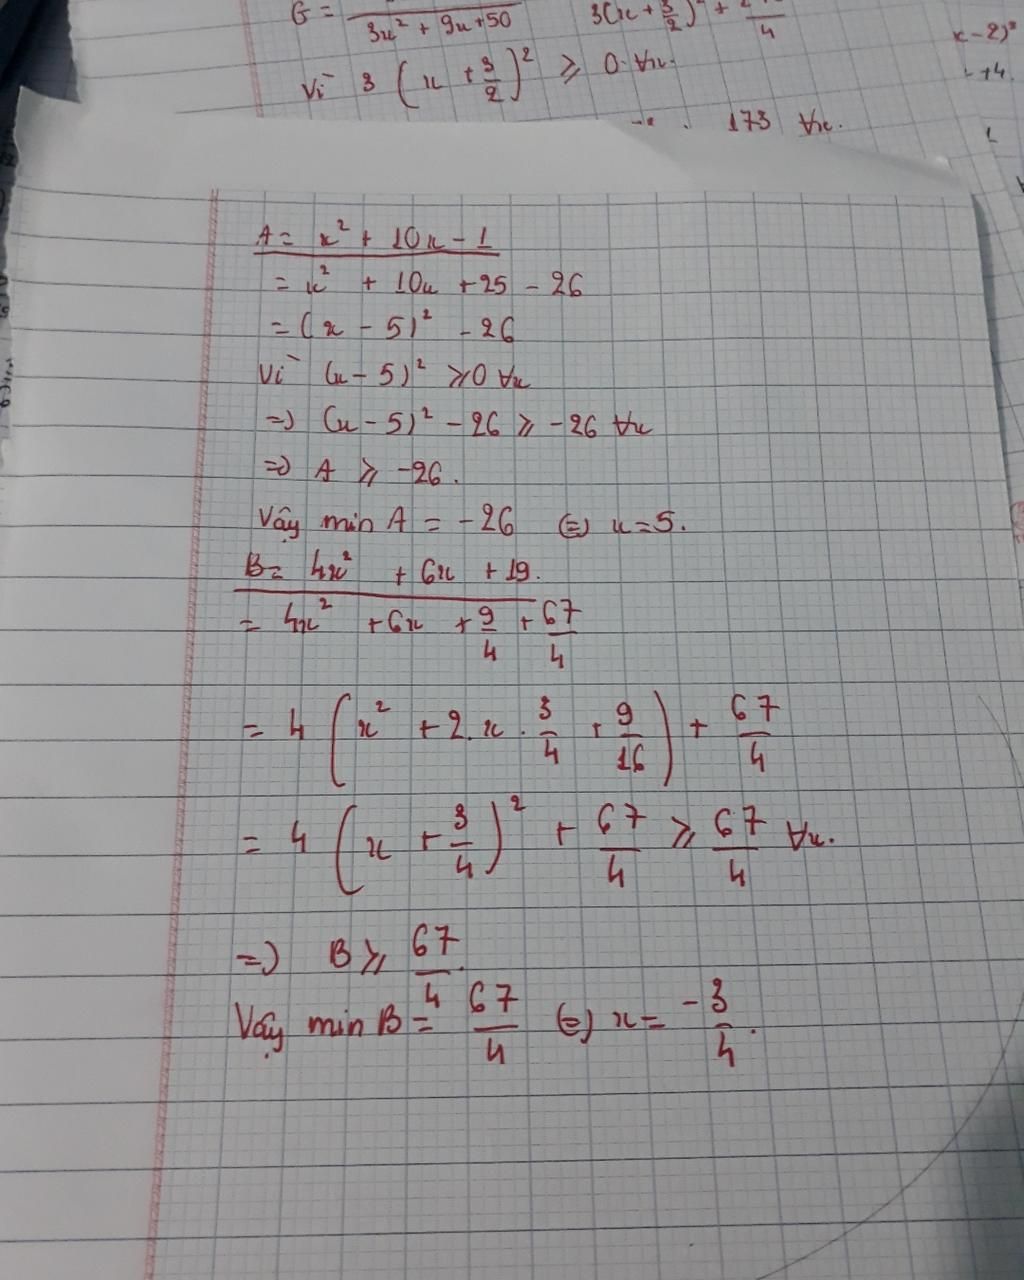 G = 3x² + 9x + 50 3(x + 3/2)² + /4
x - 2)²
Vì 3 (x + 3/2)² ≥ 0 ∀x.
+4
173 ∀x.
A = x² + 10x - 1
= x² + 10x + 25 - 26
= (x - 5)² - 26
Vì (x - 5)² ≥ 0 ∀x
=> (x - 5)² - 26 ≥ -26 ∀x
=> A ≥ -26.
Vậy min A = -26 (=) x = 5.
B = 4x² + 6x + 19.
= 4x² + 6x + 9/4 + 67/4
= 4 (x² + 2.x.3/4 + 9/16) + 67/4
= 4 (x + 3/4)² + 67/4 ≥ 67/4 ∀x.
=> B ≥ 67/4.
Vậy min B = 67/4 (=) x = -3/4.